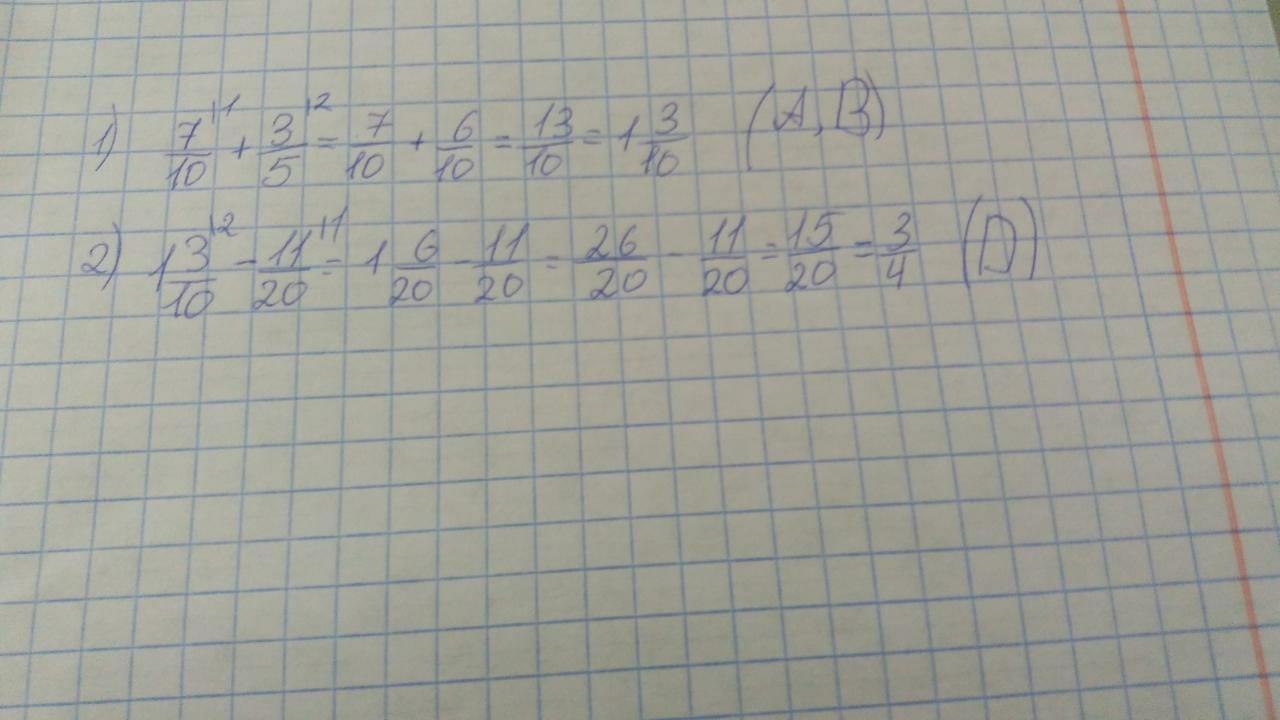 1) 7/10 |1 + 3/5 |2 = 7/10 + 6/10 = 13/10 = 1 3/10 (A, B)
2) 1 3/10 |2 - 11/20 |1 = 1 6/20 - 11/20 = 26/20 - 11/20 = 15/20 = 3/4 (D)